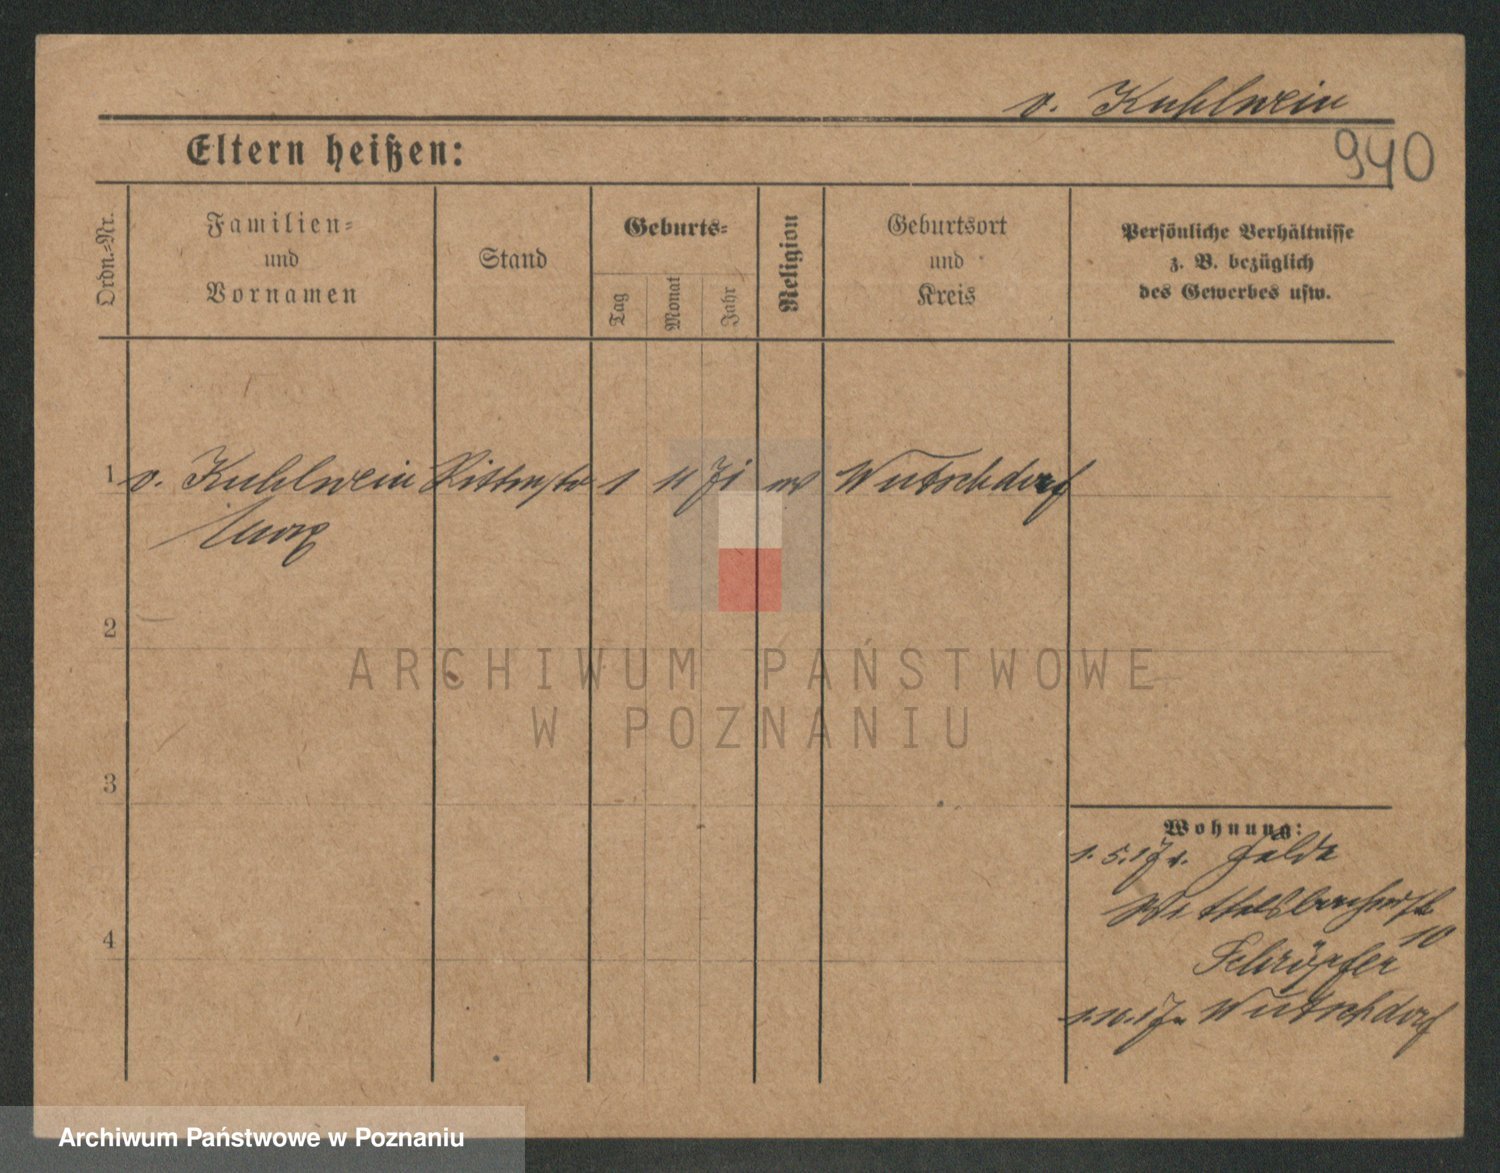 v. Kuhlwein
940
Eltern heißen:
Ordn.-Nr.
Familien-
und
Vornamen
Stand
Geburts-
Tag
Monat
Jahr
Religion
Geburtsort
und
Kreis
Persönliche Verhältnisse
z. B. bezüglich
des Gewerbes usw.
1 v. Kuhlwein 1 11 ev Wutschdorf
2
3
4
Wohnung:
1. 5.
10
Schröpfer
1.10. Wutschdorf
ARCHIWUM PAŃSTWOWE
W POZNANIU
Archiwum Państwowe w Poznaniu